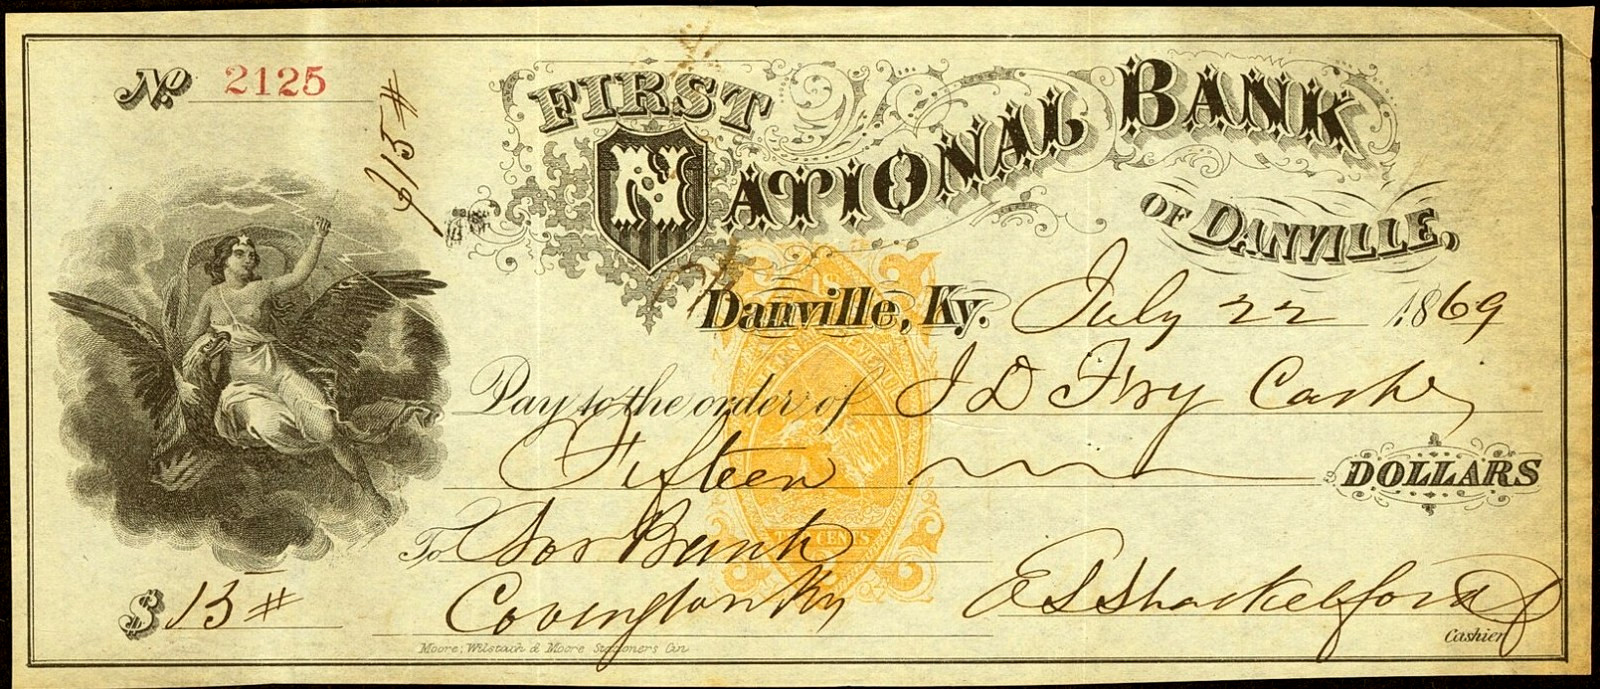 No 2125
$15#
FIRST NATIONAL BANK
OF DANVILLE,
Danville, Ky. July 22 1869
Pay to the order of J D Fry Cash
Fifteen DOLLARS
To Bank
Covington Ky
$15# E S Shackelford
Cashier
TWO CENTS
Moore, Wilstach & Moore Stationers Cin